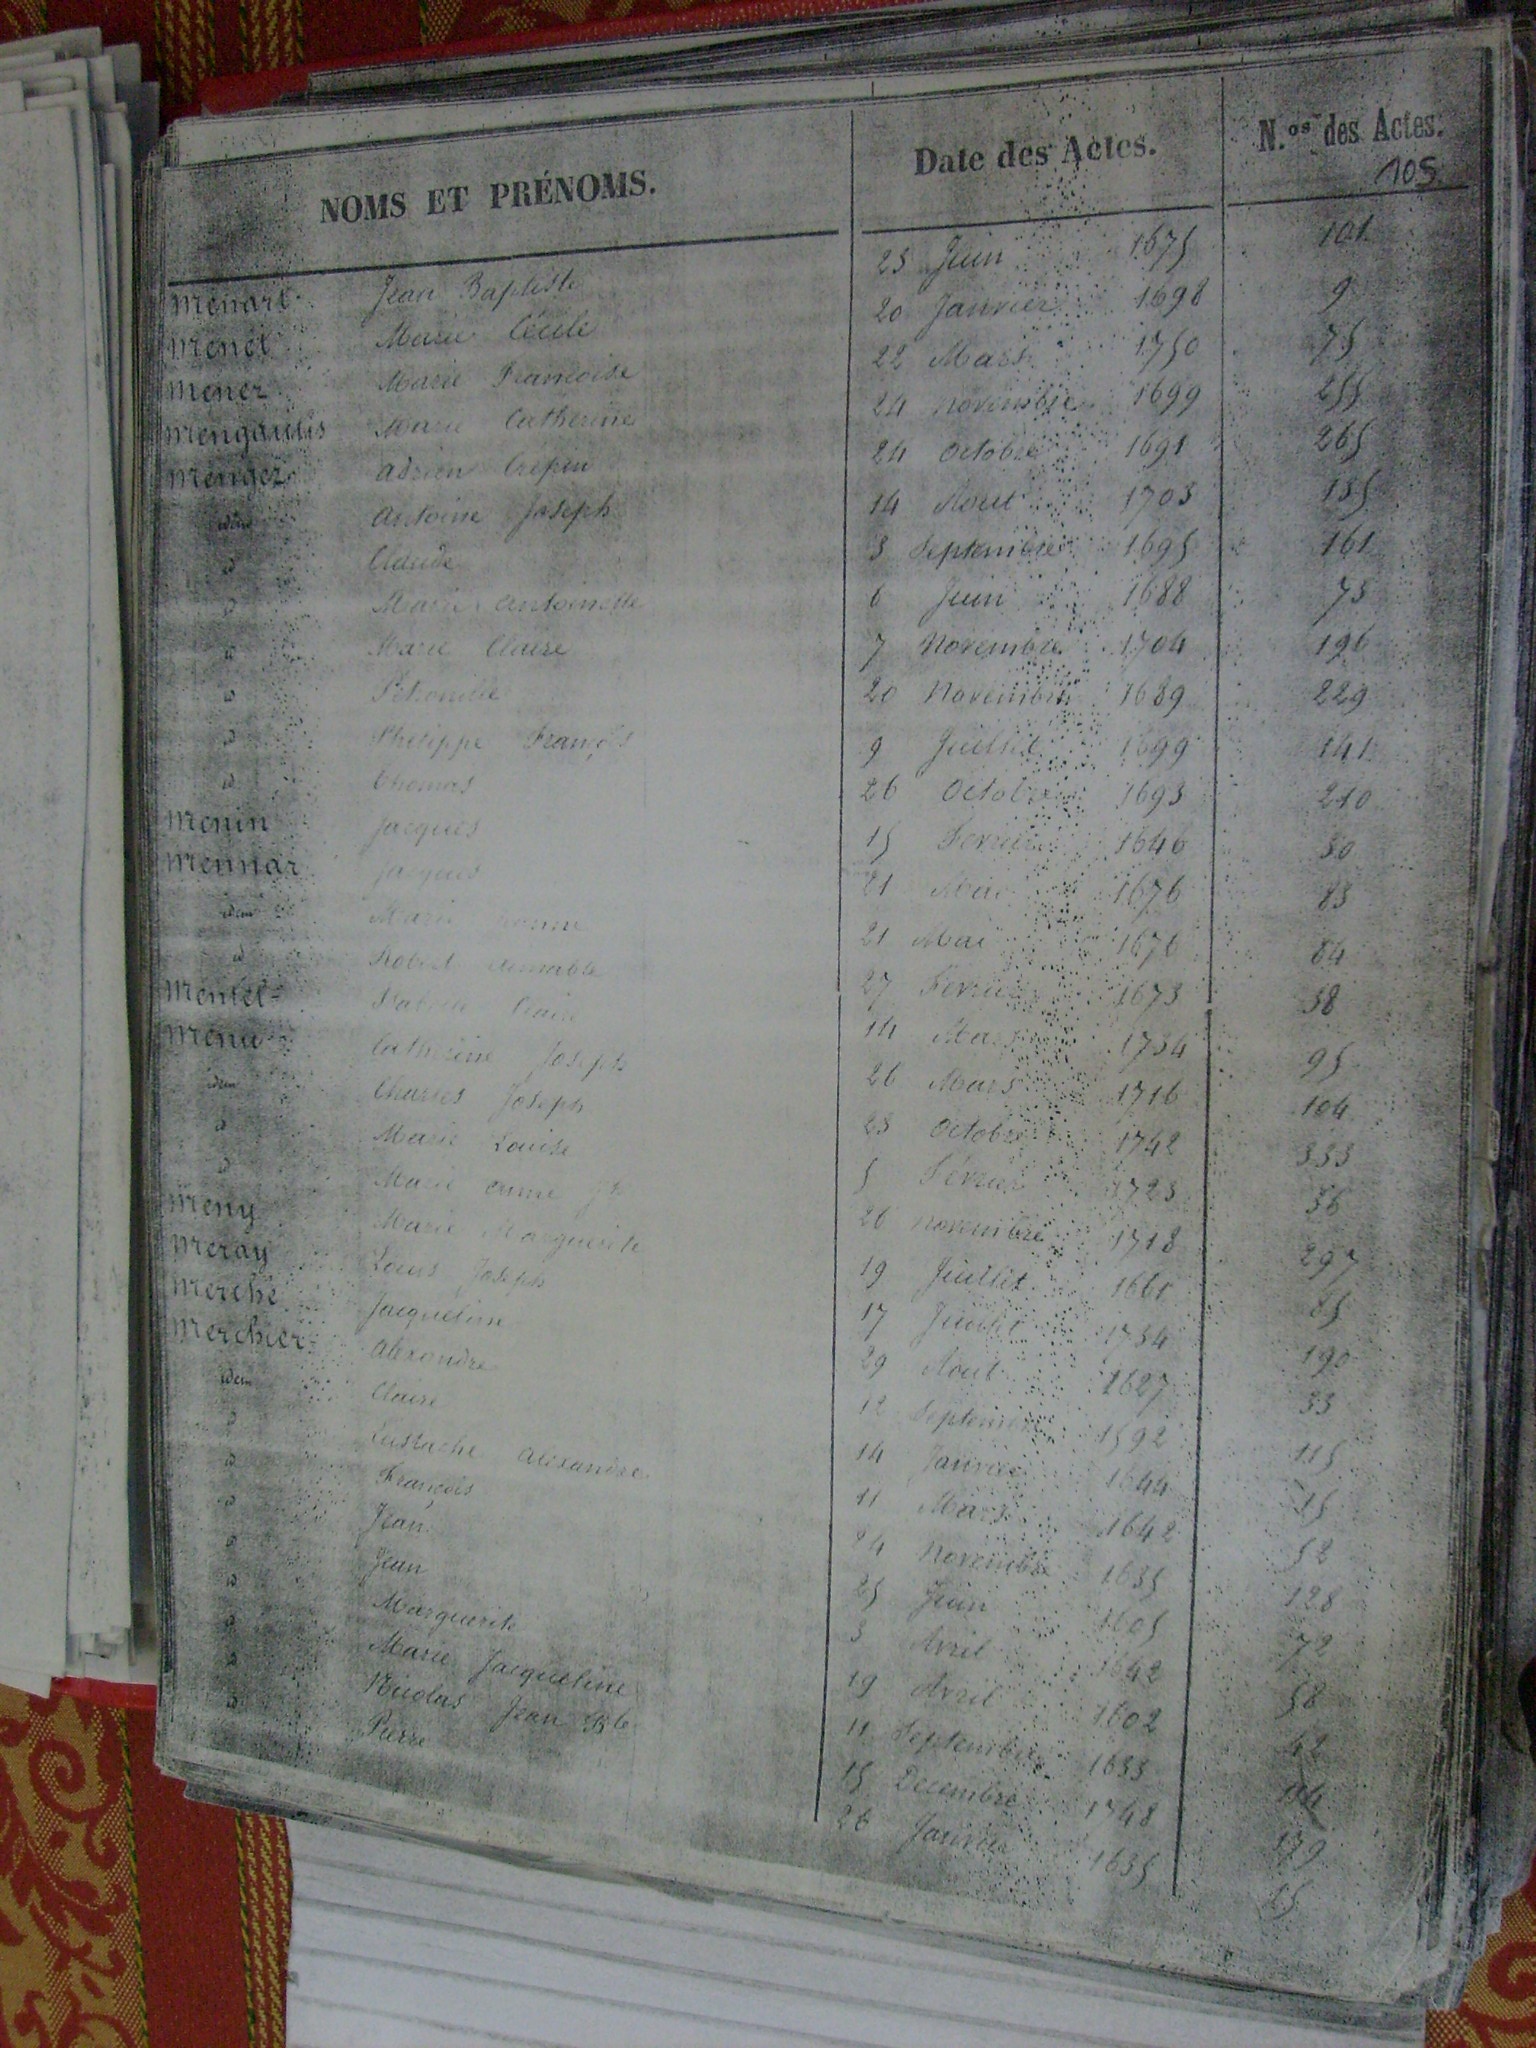 NOMS ET PRÉNOMS. Date des Actes. N.os des Actes.
105
Menart Jean Baptiste 23 Juin 1675 101
Menet Marie Cécile 20 Janvier 1698 9
Mener Marie Francoise 22 Mars 1750 75
Mengaullis Marie Catherine 24 Novembre 1699 255
Menger Adrien Crepin 24 Octobre 1691 265
idem Antoine Joseph 14 Aout 1703 135
id Claude 3 Septembre 1695 161
id Marie Antoinette 6 Juin 1688 73
id Marie Claire 7 Novembre 1704 196
id Petronille 20 Novembre 1689 229
id Philippe François 9 Juillet 1699 141
id Thomas 26 Octobre 1693 210
Menin Jacques 15 Fevrier 1646 30
Mennar Jacques 21 Mai 1676 83
idem Marie 21 Mai 1676 84
id Robert Aimable 27 Fevrier 1673 38
Mentel Isabelle Claire 14 Mars 1734 95
Menu Catherine Joseph 26 Mars 1716 104
idem Charles Joseph 23 Octobre 1742 333
id Marie Louise 5 Février 1723 36
id Marie Anne Jh 26 Novembre 1718 297
Meny Marie Marguerite 19 Juillet 1661
Meray Louis Joseph 17 Juillet 1734 190
Merche Jacqueline 29 Aout 1627 33
Merchier Alexandre 12 Septembre 1592 115
idem Claire 14 Janvier 1644 15
id Eustache Alexandre 11 Mars 1642 52
id François 24 Novembre 1635 128
id Jean 25 Juin 1605 72
id Jean 3 Avril 1642 58
id Marguerite 19 Avril 1602 42
id Marie Jacqueline 11 Septembre 1633 114
id Nicolas Jean Bte 15 Decembre 1748 179
id Pierre 26 Janvier 1635 15